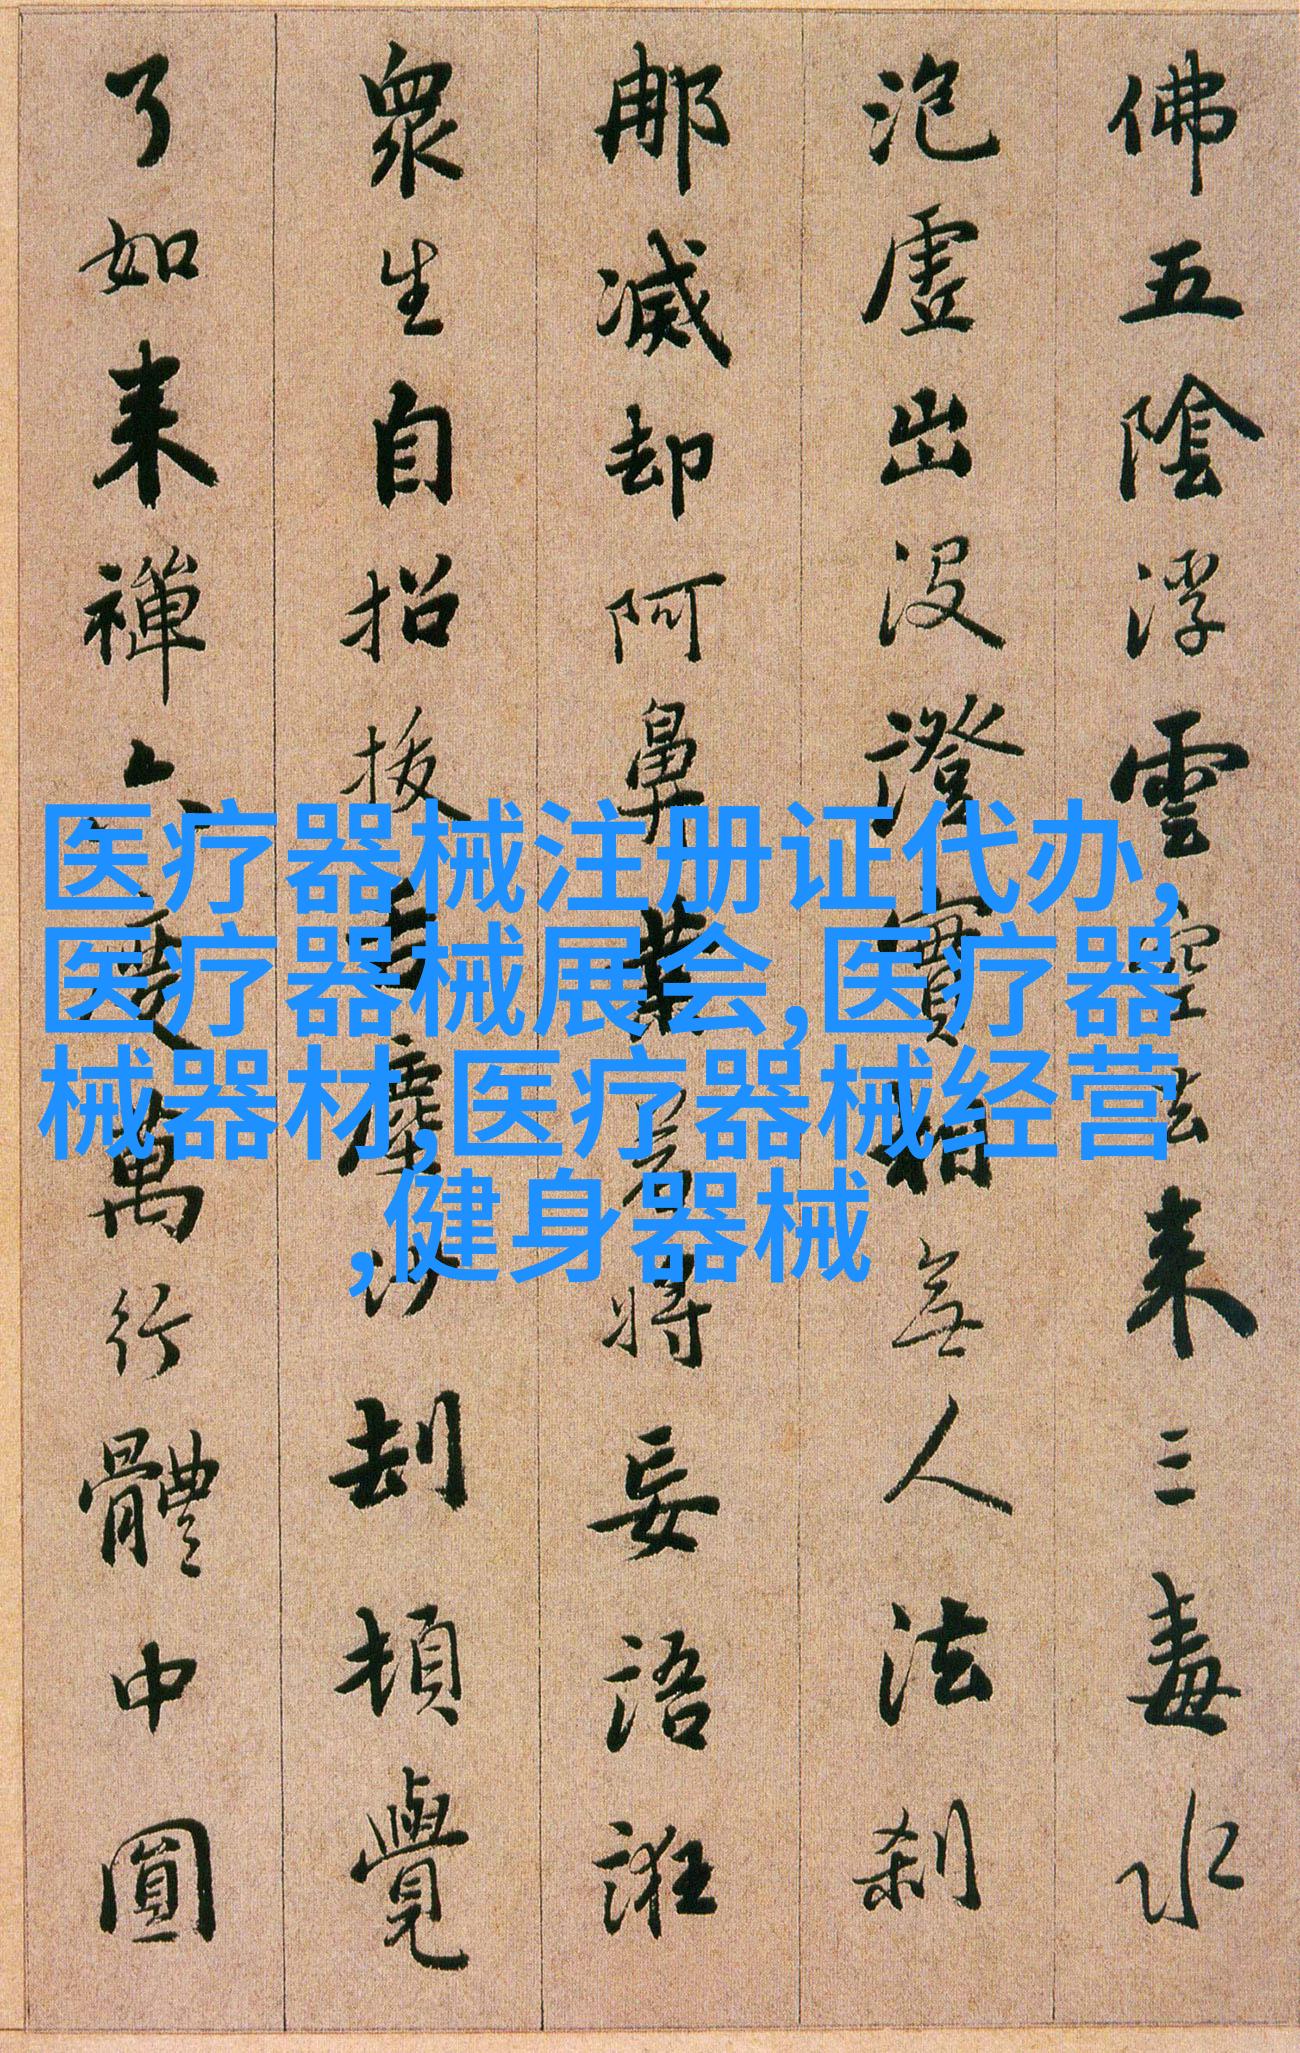 佛五陰浮雲空去来三毒水
泡虛出没證實相無人法刹
那滅却阿鼻業若將妄語誑
衆生自招拔舌塵沙劫頓覺
了如来禪六度萬行體中圓
医疗器械注册证代办,
医疗器械展会,医疗器
械器材,医疗器械经营
,健身器械